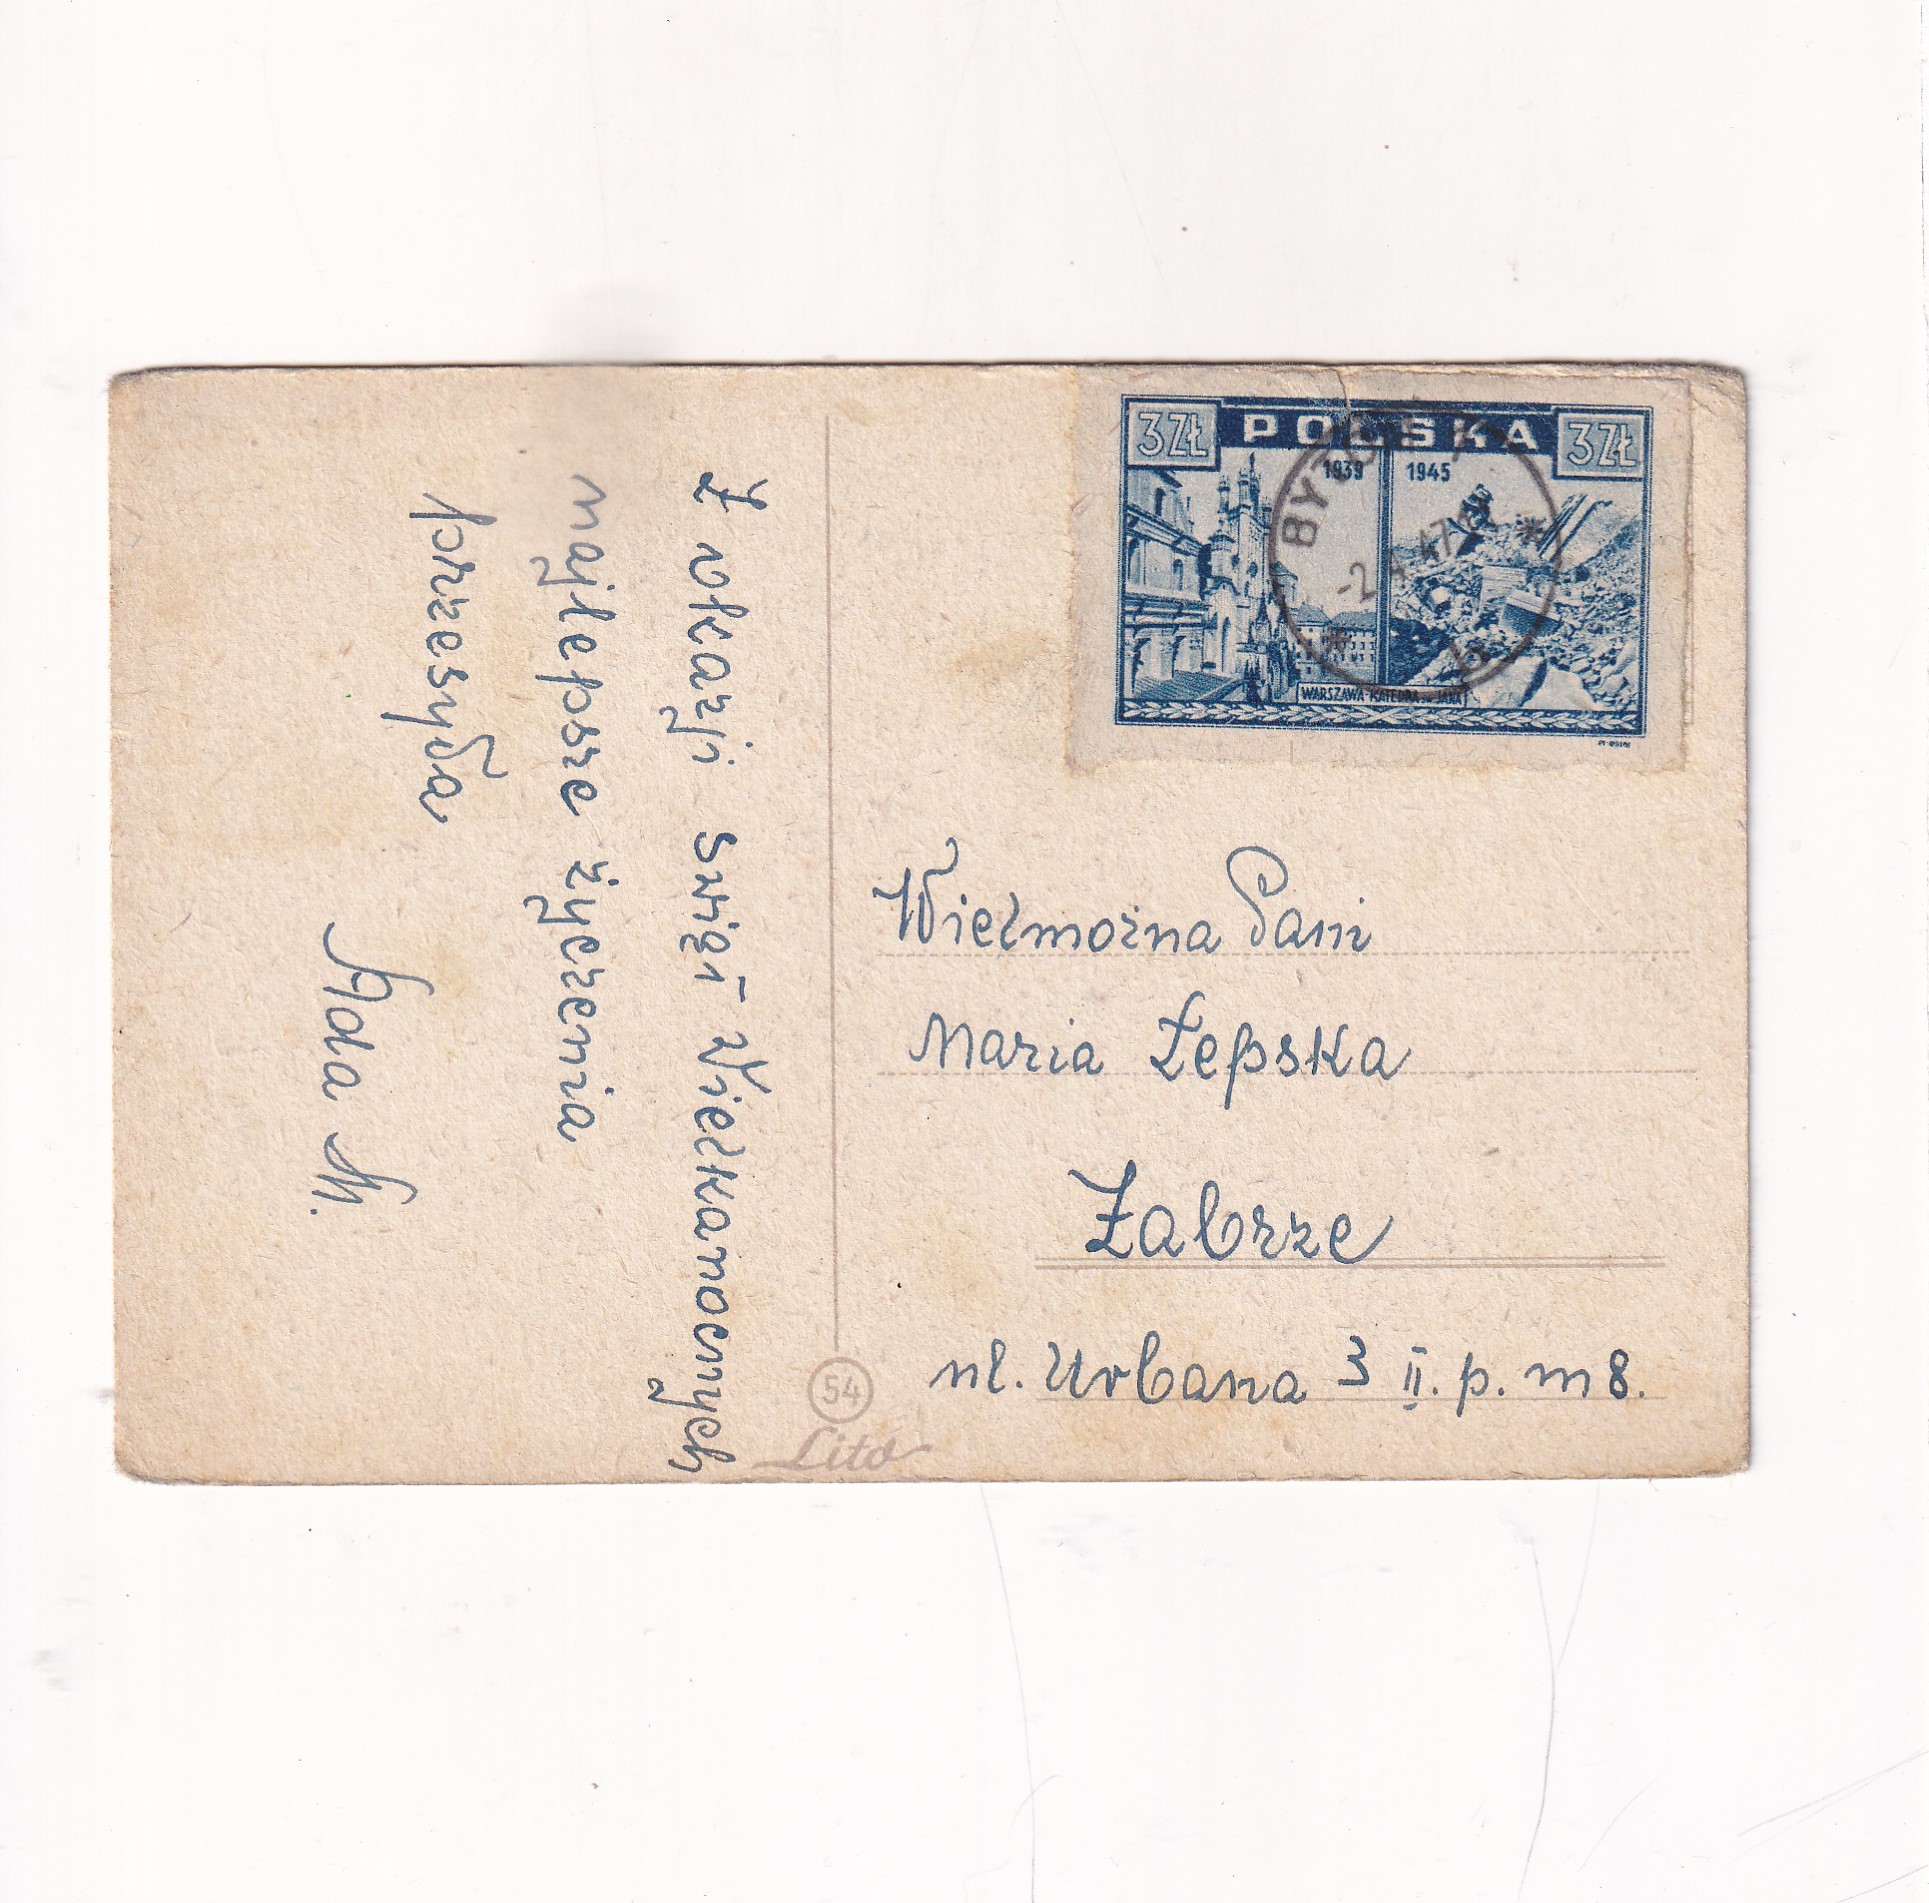 Z okazji świąt Wielkanocnych
najlepsze życzenia
przesyła
Ada M.
3 ZŁ POLSKA 3 ZŁ
1939 1945
WARSZAWA-KATEDRA JANA
BYTOM
-2 4 47
Wielmożna Pani
Maria Łepska
Zabrze
ul. Urbana 3 II. p. m 8.
54
Lito